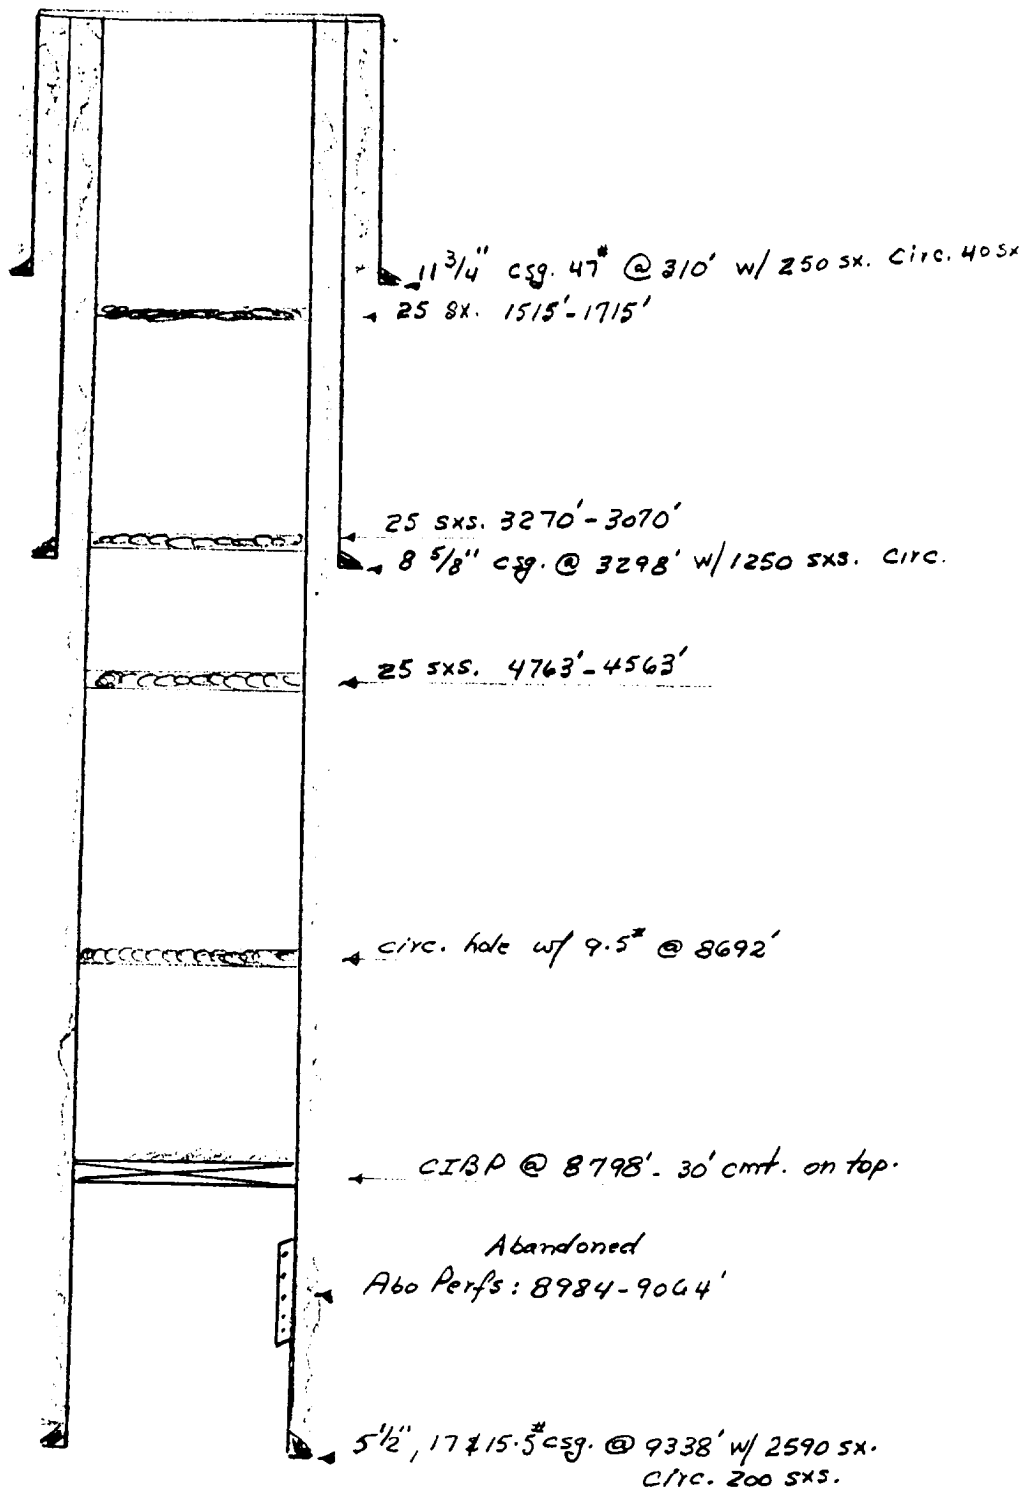 11 3/4" csg. 47# @ 310' w/ 250 sx. Circ. 40 sx
25 sx. 1515'-1715'
25 sxs. 3270'-3070'
8 5/8" csg. @ 3298' w/ 1250 sxs. Circ.
25 sxs. 4763'-4563'
circ. hole w/ 9.5# @ 8692'
CIBP @ 8798'- 30' cmt. on top.
Abandoned
Abo Perfs: 8984-9064'
5 1/2", 17 & 15.5# csg. @ 9338' w/ 2590 sx.
Circ. 200 sxs.